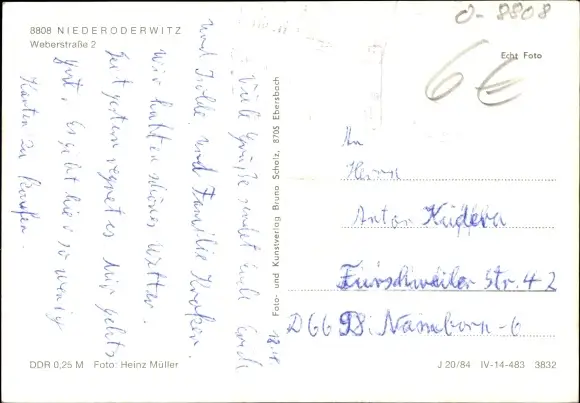 8808 NIEDERODERWITZ
Weberstraße 2
0-8808
Echt Foto
6€
Viele Grüße sendet Euch
und Isolde und Familie
Wir hatten schönes Wetter.
Seit gestern regnet es. Mir geht's
gut. Es gibt hier so wenig
Karten zu kaufen.
Foto- und Kunstverlag Bruno Scholz, 8705 Ebersbach
An
Herrn
Anton Kudera
Furschweiler Str. 42
D66 98: Namborn-6
DDR 0,25 M Foto: Heinz Müller
J 20/84 IV-14-483 3832